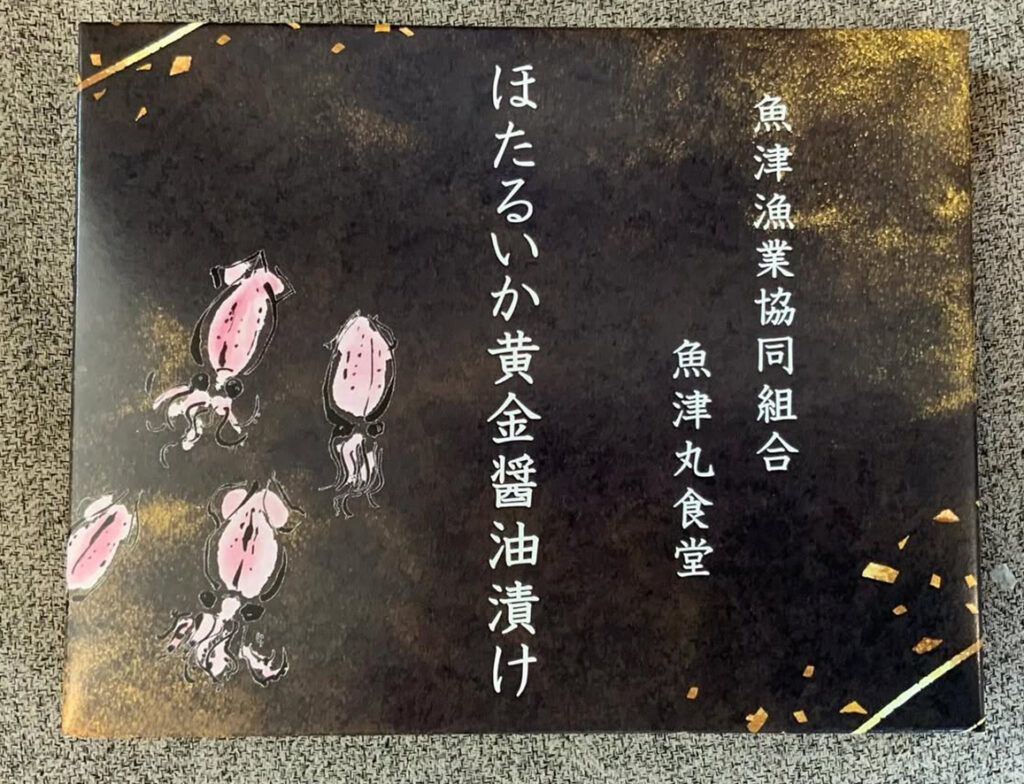 魚津漁業協同組合
魚津丸食堂
ほたるいか黄金醤油漬け